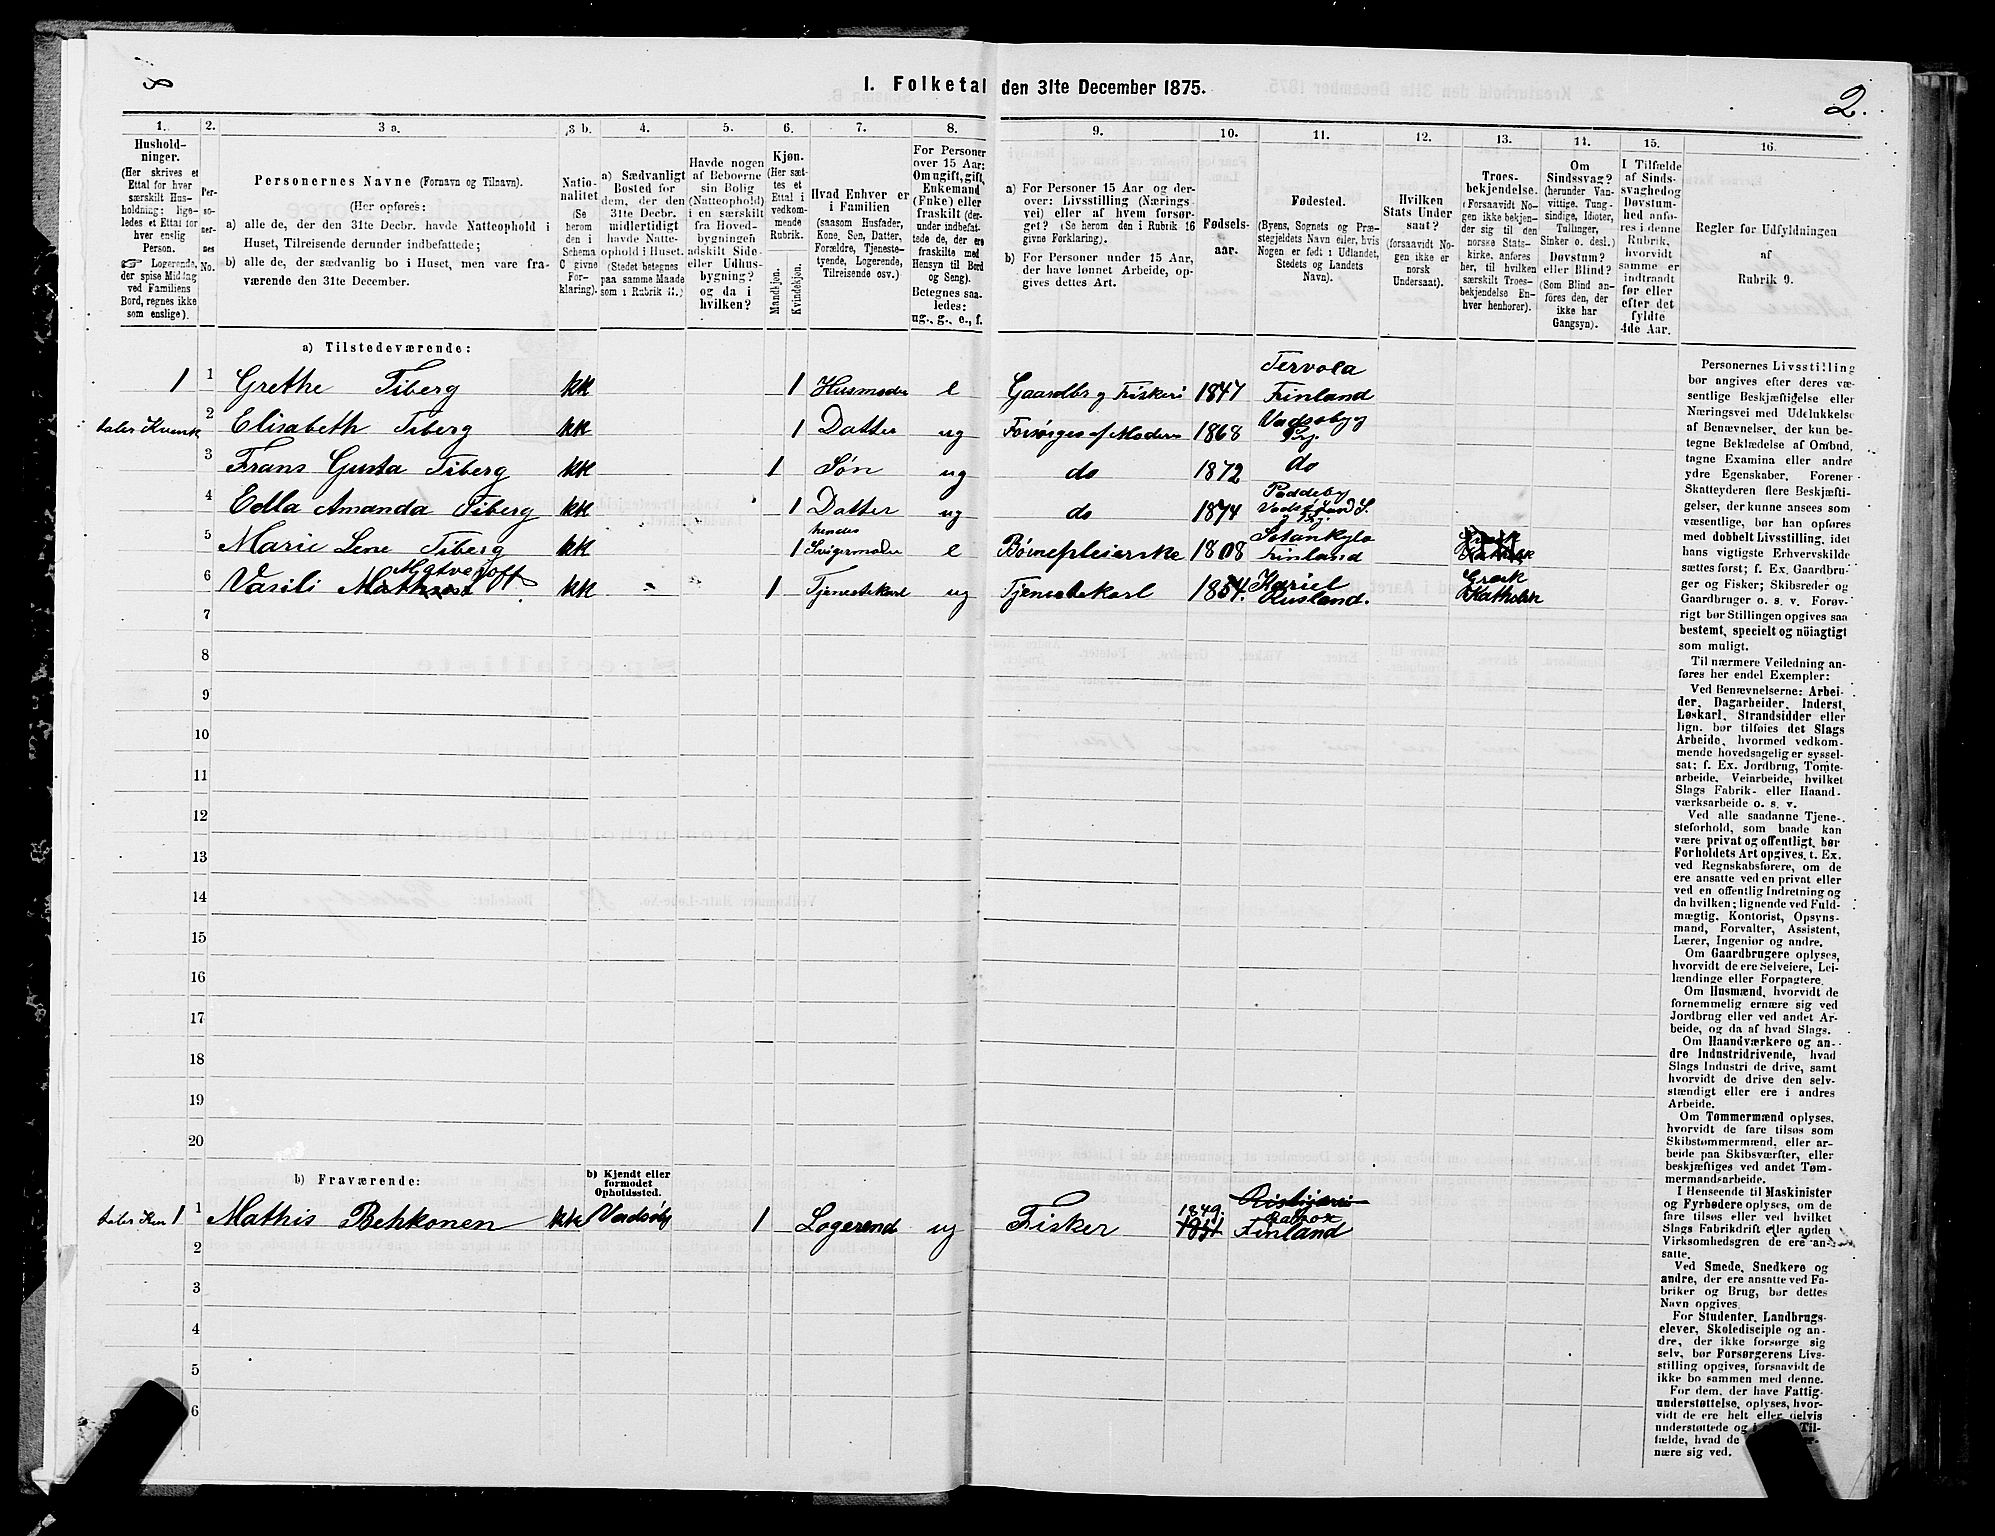 8
1. Folketal den 31te December 1875.
2.
1. 2. 3 a. 3 b. 4. 5. 6. 7. 8. 9. 10. 11. 12. 13. 14. 15. 16.
Hushold-
ninger.
(Her skrives et
Ettal for hver
særskilt Hus-
holdning; lige-
ledes et Ettal for
hver enslig
Person.
☞ Logerende,
der spise Middag
ved Familiens
Bord, regnes ikke
som enslige).
Per-
so-
ner-
nes
No.
Personernes Navne (Fornavn og Tilnavn).
(Her opføres:
a) alle de, der den 31te Decbr. havde Natteophold i
Huset, Tilreisende derunder indbefattede;
b) alle de, der sædvanlig bo i Huset, men vare fra-
værende den 31te December.
Natio-
nalitet
(Se
herom
den i
Schema
C givne
For-
klaring).
a) Sædvanligt
Bosted for
dem, der den
31te Decbr.
midlertidigt
havde Natte-
ophold i Huset.
(Stedet betegnes
paa samme Maade
som i Rubrik 11.)
Havde nogen
af Beboerne
sin Bolig
(Natteophold)
i en særskilt
fra Hoved-
bygningen
adskilt Side-
eller Udhus-
bygning?
og da i
hvilken?
Kjøn.
(Her sæt-
tes et
Ettal i
vedkom-
mende
Rubrik.
Mandkjøn.
Kvindekjøn.
Hvad Enhver er
i Familien
(saasom Husfader,
Kone, Søn, Datter,
Forældre, Tjeneste-
tyende, Logerende,
Tilreisende osv.)
For Personer
over 15 Aar:
Om ugift, gift,
Enkemand
(Enke) eller
fraskilt (der-
under indbefat-
tede de, der ere
fraskilte med
Hensyn til Bord
og Seng).
Betegnes saa-
ledes:
ug., g., e., f.
a) For Personer 15 Aar og der-
over: Livsstilling (Nærings-
vei) eller af hvem forsør-
get? (Se herom den i Rubrik 16
givne Forklaring).
b) For Personer under 15 Aar,
der have lønnet Arbeide, op-
gives dettes Art.
Fødsels-
aar.
Fødested.
(Byens, Sognets og Præ-
stegjeldets Navn eller, hvis
Nogen er født i Udlandet,
Stedets og Landets
Navn).
Hvilken
Stats Under
saat?
(forsaavidt No-
gen ikke er
norsk
Undersaat).
Troes-
bekjendelse.
(Forsaavidt No-
gen ikke bekjen-
der sig til den
norske Stats-
kirke, anføres
her, til hvilken
særskilt Troes-
bekjendelse En-
hver henhører).
Om
Sindssvag?
(herunder Van-
vittige, Tung-
sindige, Idioter,
Tullinger,
Sinker o. desl.)
Døvstum?
eller Blind?
(Som Blind an-
føres den, der
ikke har
Gangsyn).
I Tilfælde
af Sinds-
svaghed og
Døvstum-
hed anfø-
res i denne
Rubrik,
hvorvidt
samme er
indtraadt
før eller
efter det
fyldte
4de Aar.
Regler for Udfyldningen
af
Rubrik 9.
a) Tilstedeværende:
1 1 Grethe Tiberg kk 1 Husmoder e Gaardbr og Fiskeri 1847 Tervola Finland
taler Kvensk 2 Elisabeth Tiberg kk 1 Datter ug Forsørges af Moderen 1868 Vadsøbyg Pg.
3 Frans Gusta Tiberg kk 1 Søn ug do 1872 do
4 Edla Amanda Tiberg kk 1 Datter ug do 1874 Paddeby
5 Marie Lene Tiberg kk 1 hendes Svigermoder e Børnepleierske 1808 Finland Græsk Katholsk
6 Vasili Matveijoff kk 1 Tjenestekarl ug Tjenestekarl 1854. Kariel Rusland. Græsk Katholsk
7
8
9
10
11
12
13
14
15
16
17
18
19
20
b) Fraværende:
b) Kjendt eller
formodet
Opholdssted.
1 1 Mathis Behkonen kk Vadsøby 1 Logerend ug Fisker 1849. 1851 Finland
2
3
4
5
6
Personernes Livsstilling
bør angives efter deres væ-
sentlige Beskjæftigelse eller
Næringsvei med Udelukkelse
af Benævnelser, der kun be-
tegne Beklædelse af Ombud,
tagne Examina eller andre
ydre Egenskaber. Forener
Skatteyderen flere Beskjæfti-
gelser, der kunne ansees som
væsentlige, bør han opføres
med dobbelt Livsstilling, idet
hans vigtigste Erhvervskilde
sættes først; f. Ex. Gaardbru-
ger og Fisker; Skibsreder og
Gaardbruger o. s. v. Forøv-
rigt bør Stillingen opgives saa
bestemt, specielt og nöiagtigt
som muligt.
Til nærmere Veiledning an-
føres her endel Exempler:
Ved Benævnelserne: Arbei-
der, Dagarbeider, Inderst,
Løskarl, Strandsidder eller
lign. bør tilføies det Slags
Arbeide, hvormed vedkom-
mende hovedsagelig er syssel-
sat; f. Ex. Jordbrug, Tomte-
arbeide, Veiarbeide, hvilket
Slags Fabrik- eller Haand-
værksarbeide o. s. v.
Ved alle saadanne Tjene-
steforhold, som baade kan
være privat og offentligt, bør
Forholdets Art opgives, t. Ex.
ved Regnskabsførere, om de
ere ansatte ved en privat eller
ved en offentlig Indretning og
da hvilken; lignende ved Fuld-
mægtig, Kontorist, Opsyns-
mand, Forvalter, Assistent,
Lærer, Ingeniør og andre.
Om Gaardbrugere oplyses,
hvorvidt de ere Selveiere, Lei-
lændinge eller Forpagtere.
Om Husmænd, hvorvidt de
fornemmelig ernære sig ved
Jordbrug eller ved andet Ar-
beide, og da af hvad Slags.
Om Haandværkere og an-
dre Industridrivende, hvad
Slags Industri de drive, samt
hvorvidt de drive den selv-
stændigt eller ere i andres
Arbeide.
Om Tømmermænd oplyses,
hvorvidt de fare tilsøs som
Skibstømmermænd, eller ar-
beide paa Skibsværfter, eller
beskjæftiges ved andet Tøm-
mermandsarbeide.
I Henseende til Maskinister
og Fyrbødere oplyses, om de
fare tilsøs eller ved hvilket
Slags Fabrikdrift eller anden
Virksomhedsgren de ere an-
satte.
Ved Smede, Snedkere og
andre, der ere ansatte ved Fa-
briker og Brug, bør dettes
Navn opgives.
For Studenter, Landbrugs-
elever, Skoledisciple og an-
dre, der ikke forsørge sig
selv, bør Forsørgerens Livs-
stilling opgives, forsaavidt de
ikke bo sammen med denne.
For dem, der have Fattig-
understøttelse, oplyses, hvor-
vidt de ere helt eller delvis
understøttede og i Til-
fælde, hvad de
nære sig ved.